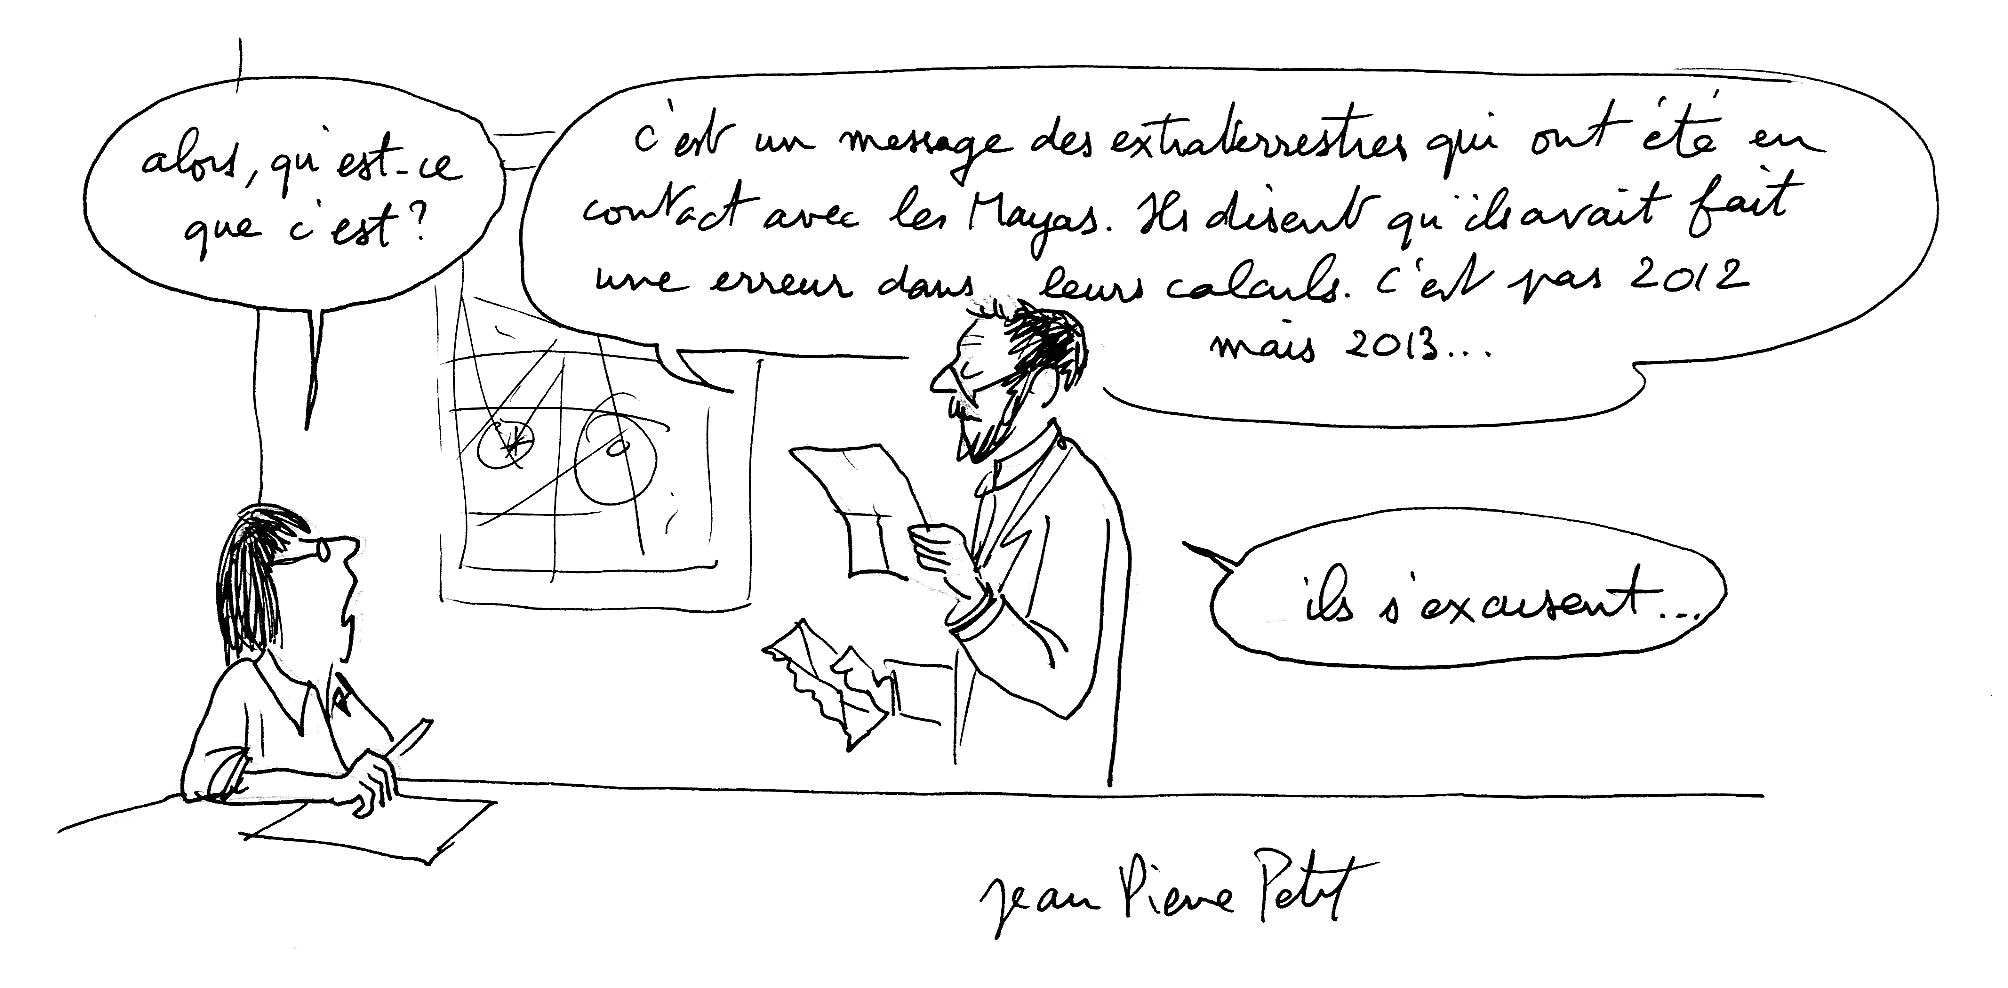 alors, qu'est-ce
que c'est?
c'est un message des extraterrestres qui ont été en
contact avec les Mayas. Ils disent qu'ils avait fait
une erreur dans leurs calculs. C'est pas 2012
mais 2013...
ils s'excusent...
jean Pierre Petit